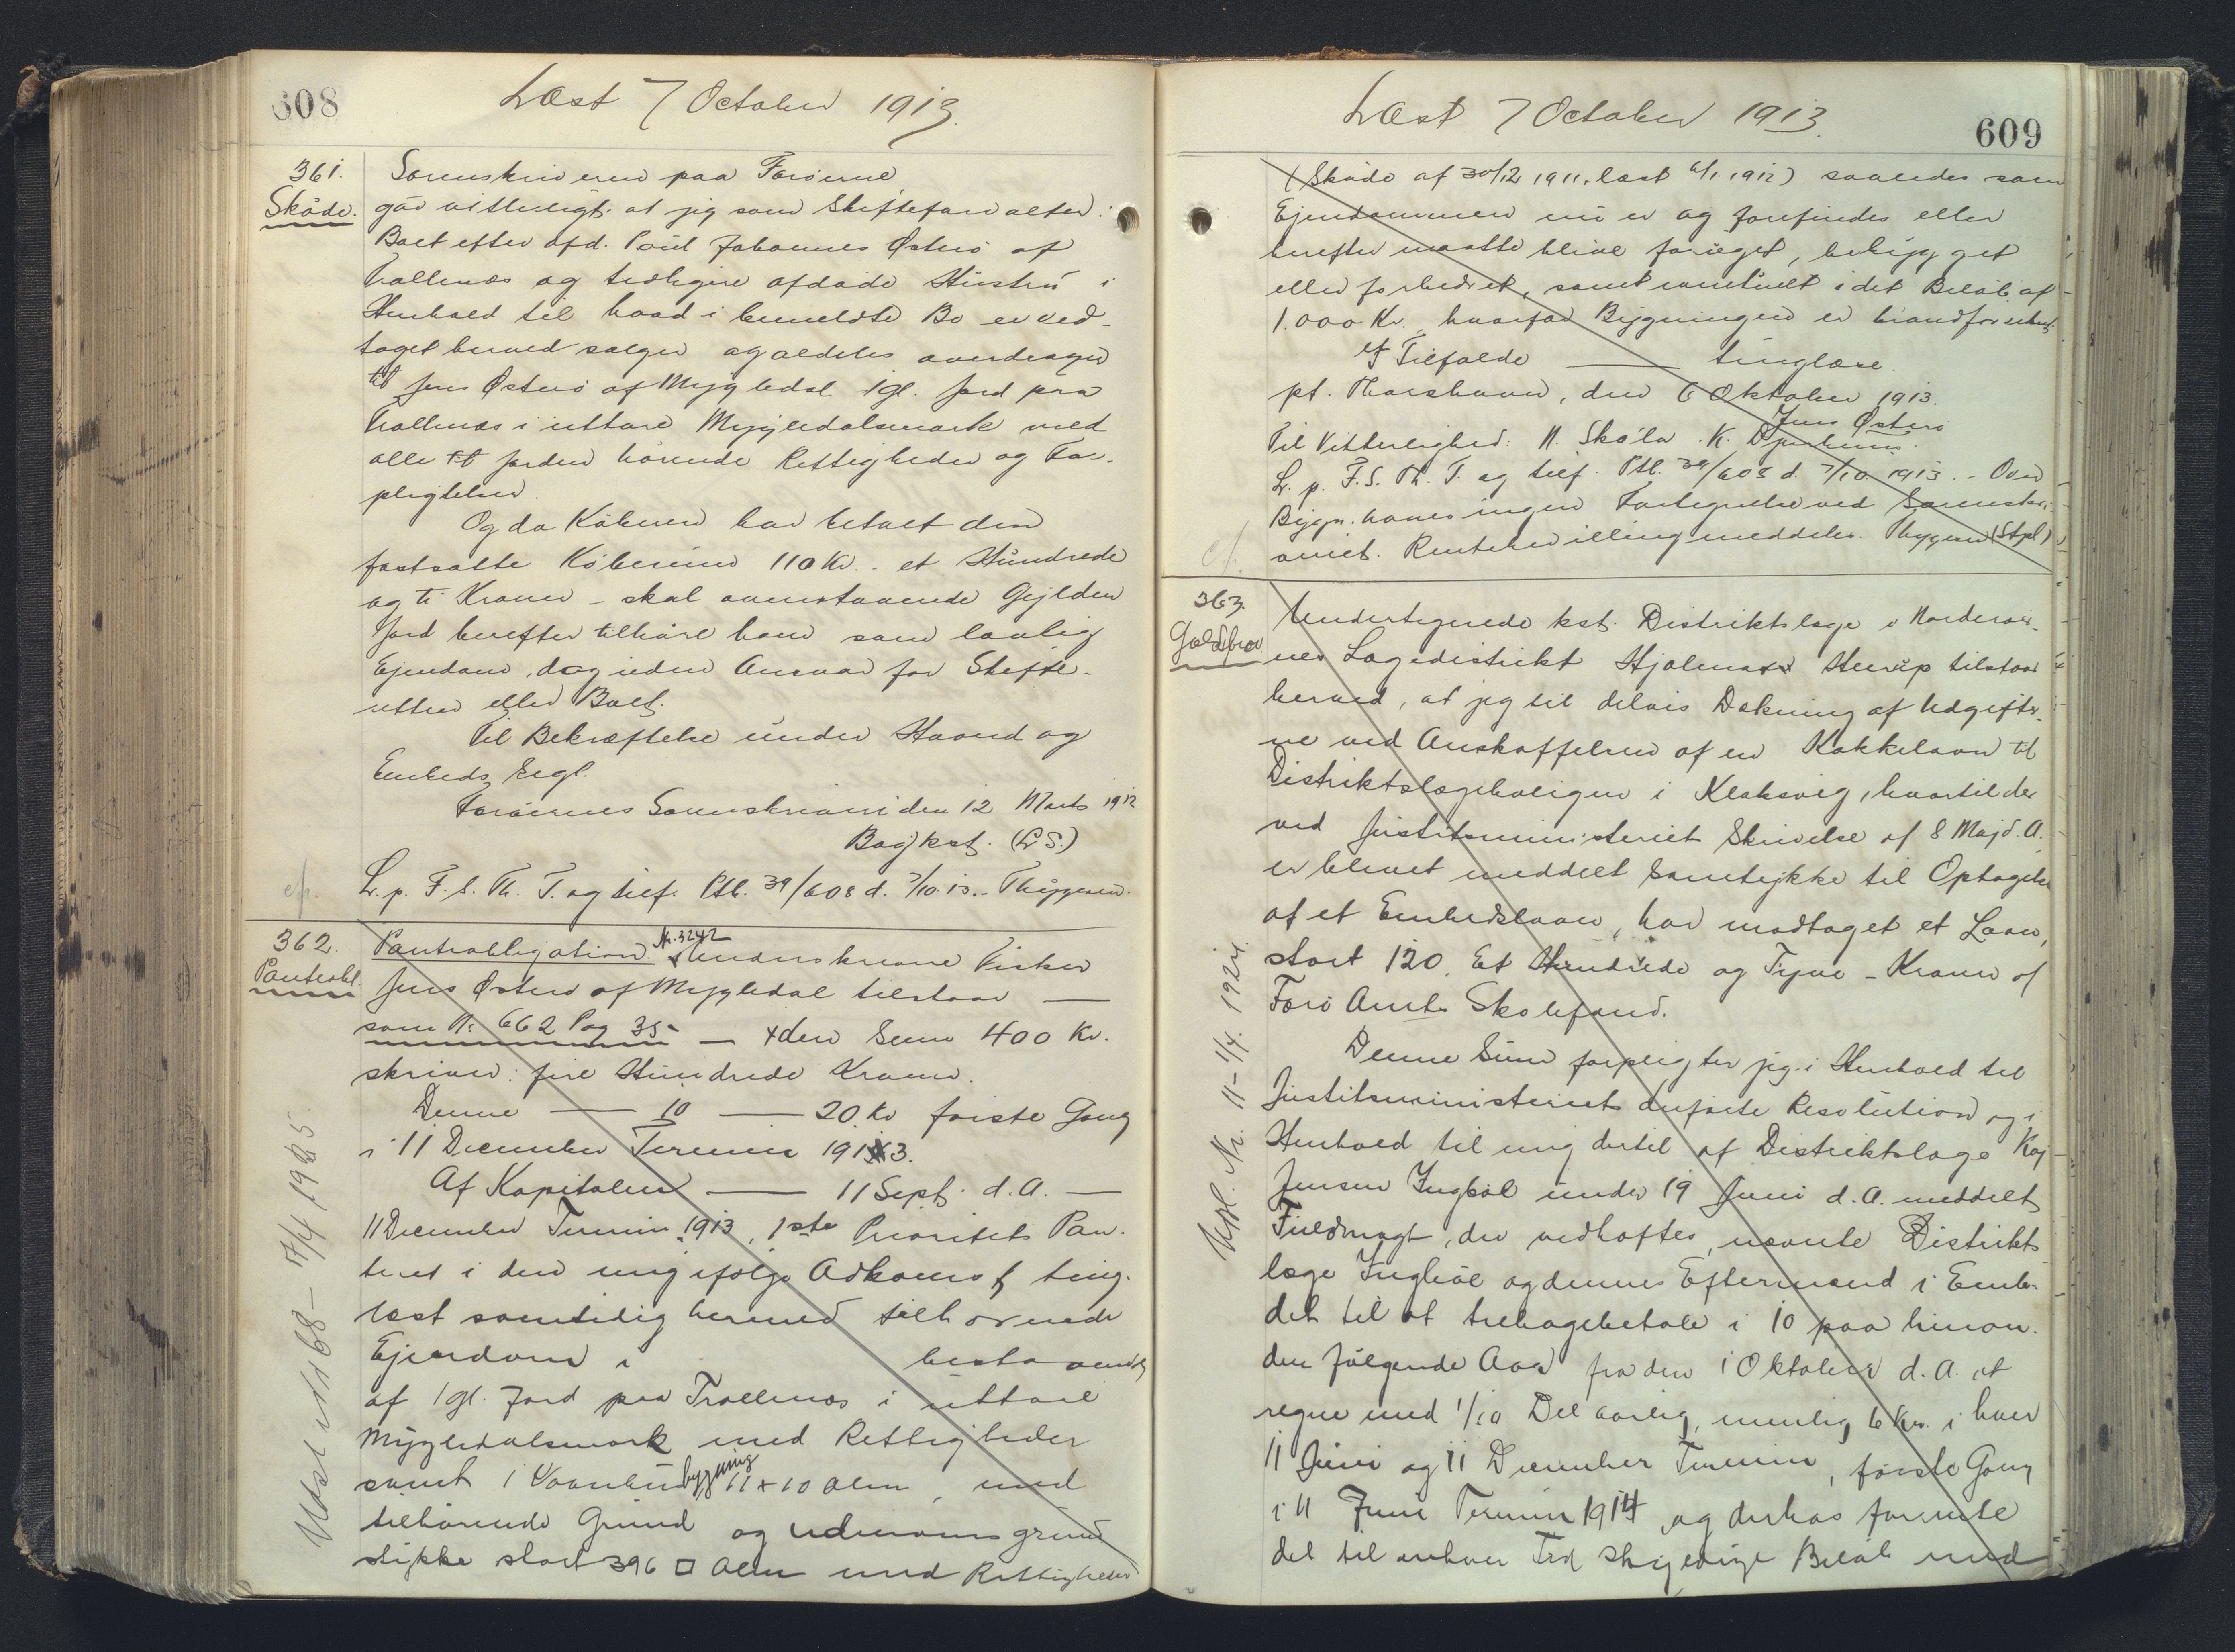 608
Læst 7 October 1913.
361.
Skøde.
Sorenskriveren paa Færøerne
gør vitterligt: at jeg som Skifteforvalter i
Boet efter afd. Poul Johannes Østerø af
Trollenæs og tidligere afdøde Hustru i
Henhold til hvad i bemeldte Bo er ved-
taget herved sælger og aldeles overdrager
til Jens Østerø af Mygledal 1 gl. Jord paa
Trollenæs i uttare Mygledalsmark med
alle til Jorden hørende Rettigheder og For-
pligtelser.
Og da Køberen har betalt den
fastsatte Købesum 110 Kr. - et Hundrede
og ti Kroner - skal ovenstaaende Gylden
Jord herefter tilhøre ham som lovlig
Ejendom, dog uden Ansvar for Skifte-
retten eller Boet.
Til Bekræftelse under Haand og
Embeds Segl.
Færøernes Sorenskriveri den 12 Marts 1912
Bag kst. (L.S.)
cf.
L. p. F. S. Th. T. og tilf. Ptb. 39/608 d. 7/10 13. - Thygesen.
362.
Panteobl.
Panteobligation. Nr. 3242 Underskrevne Fisker
Jens Østerø af Mygledal tilstaar —
som Nr. 662 Pag 35 - — den Sum 400 Kr.
skriver: fire Hundrede Kroner.
Denne — 10 — 20 Kr første Gang
i 11 December Termin 1913.
Af Kapitalen — 11 Sept. d. A. —
11 December Termin 1913, 1ste Prioritets Pan-
teret i den mig ifølge Adkomst, ting-
læst samtidig hermed tilhørende
Ejendom i bestaaende
af 1 gl. Jord paa Trollenæs i uttare
Mygledalsmark med Rettigheder
samt 1 Vaanhus bygning 11 x 10 Alen, med
tilhørende Grund og udenoms grund
stykke stort 396 □ Alen med Rettigheder
Udsl. 17/4 1925
609
Læst 7 October 1913.
(Skøde af 30/12 1911, læst 6/1 1912) saaledes som
Ejendommen nu er og forefindes eller
herefter maatte blive forøget, bebygget
eller forbedret, samt eventuelt i det Beløb af
1.000 Kr., hvorfor Bygningen er brandforsikret.
I Tilfælde — tinglæse.
pt. Thorshavn, den 6 Oktober 1913.
Jens Østerø
Til Vitterlighed: N. Skaale. K. Djurhuus.
L. p. F. S. Th. T. og tilf. Ptb. 39/608 d. 7/10 1913. - Over
Bygn. haves ingen Fortegnelse ved Sorenskri-
veriet. Rentebevilling meddeles. Thygesen (Stpl)
cf.
363.
Gældsbrev
Undertegnede kst. Distriktslæge i Norderøer-
nes Lægedistrikt Hjalmar Heerup tilstaar
herved, at jeg til delvis Dækning af Udgifter-
ne ved Anskaffelsen af en Kakkelovn til
Distriktslægeboligen i Klaksvig, hvortil der
ved Justitsministeriet Skrivelse af 8 Maj d. A.
er blevet meddelt Samtykke til Optagelse
af et Embedslaan, har modtaget et Laan,
stort 120, Et Hundrede og Tyve - Kroner af
Færø Amts Skolefond.
Denne Sum forpligter jeg i Henhold til
Justitsministeriets anførte Resolution og i
Henhold til mig dertil af Distriktslæge Kaj
Jensen Yngbøl under 19 Juni d. A. meddelt
Fuldmagt, der vedhæftes, nævnte Distrikts
læge Yngbøl og dennes Eftermænd i Embe-
det til at tilbagebetale i 10 paa hinan-
den følgende Aar fra den 1 Oktober d. A. at
regne med 1/10 Del aarlig, nemlig 6 Kr. i hver
11 Juni og 11 December Termin, første Gang
i 11 Juni Termin 1914 og derhos forrente
det til enhver Tid skyldige Beløb med
Udsl. Nr. 11 - 1/4 1924.